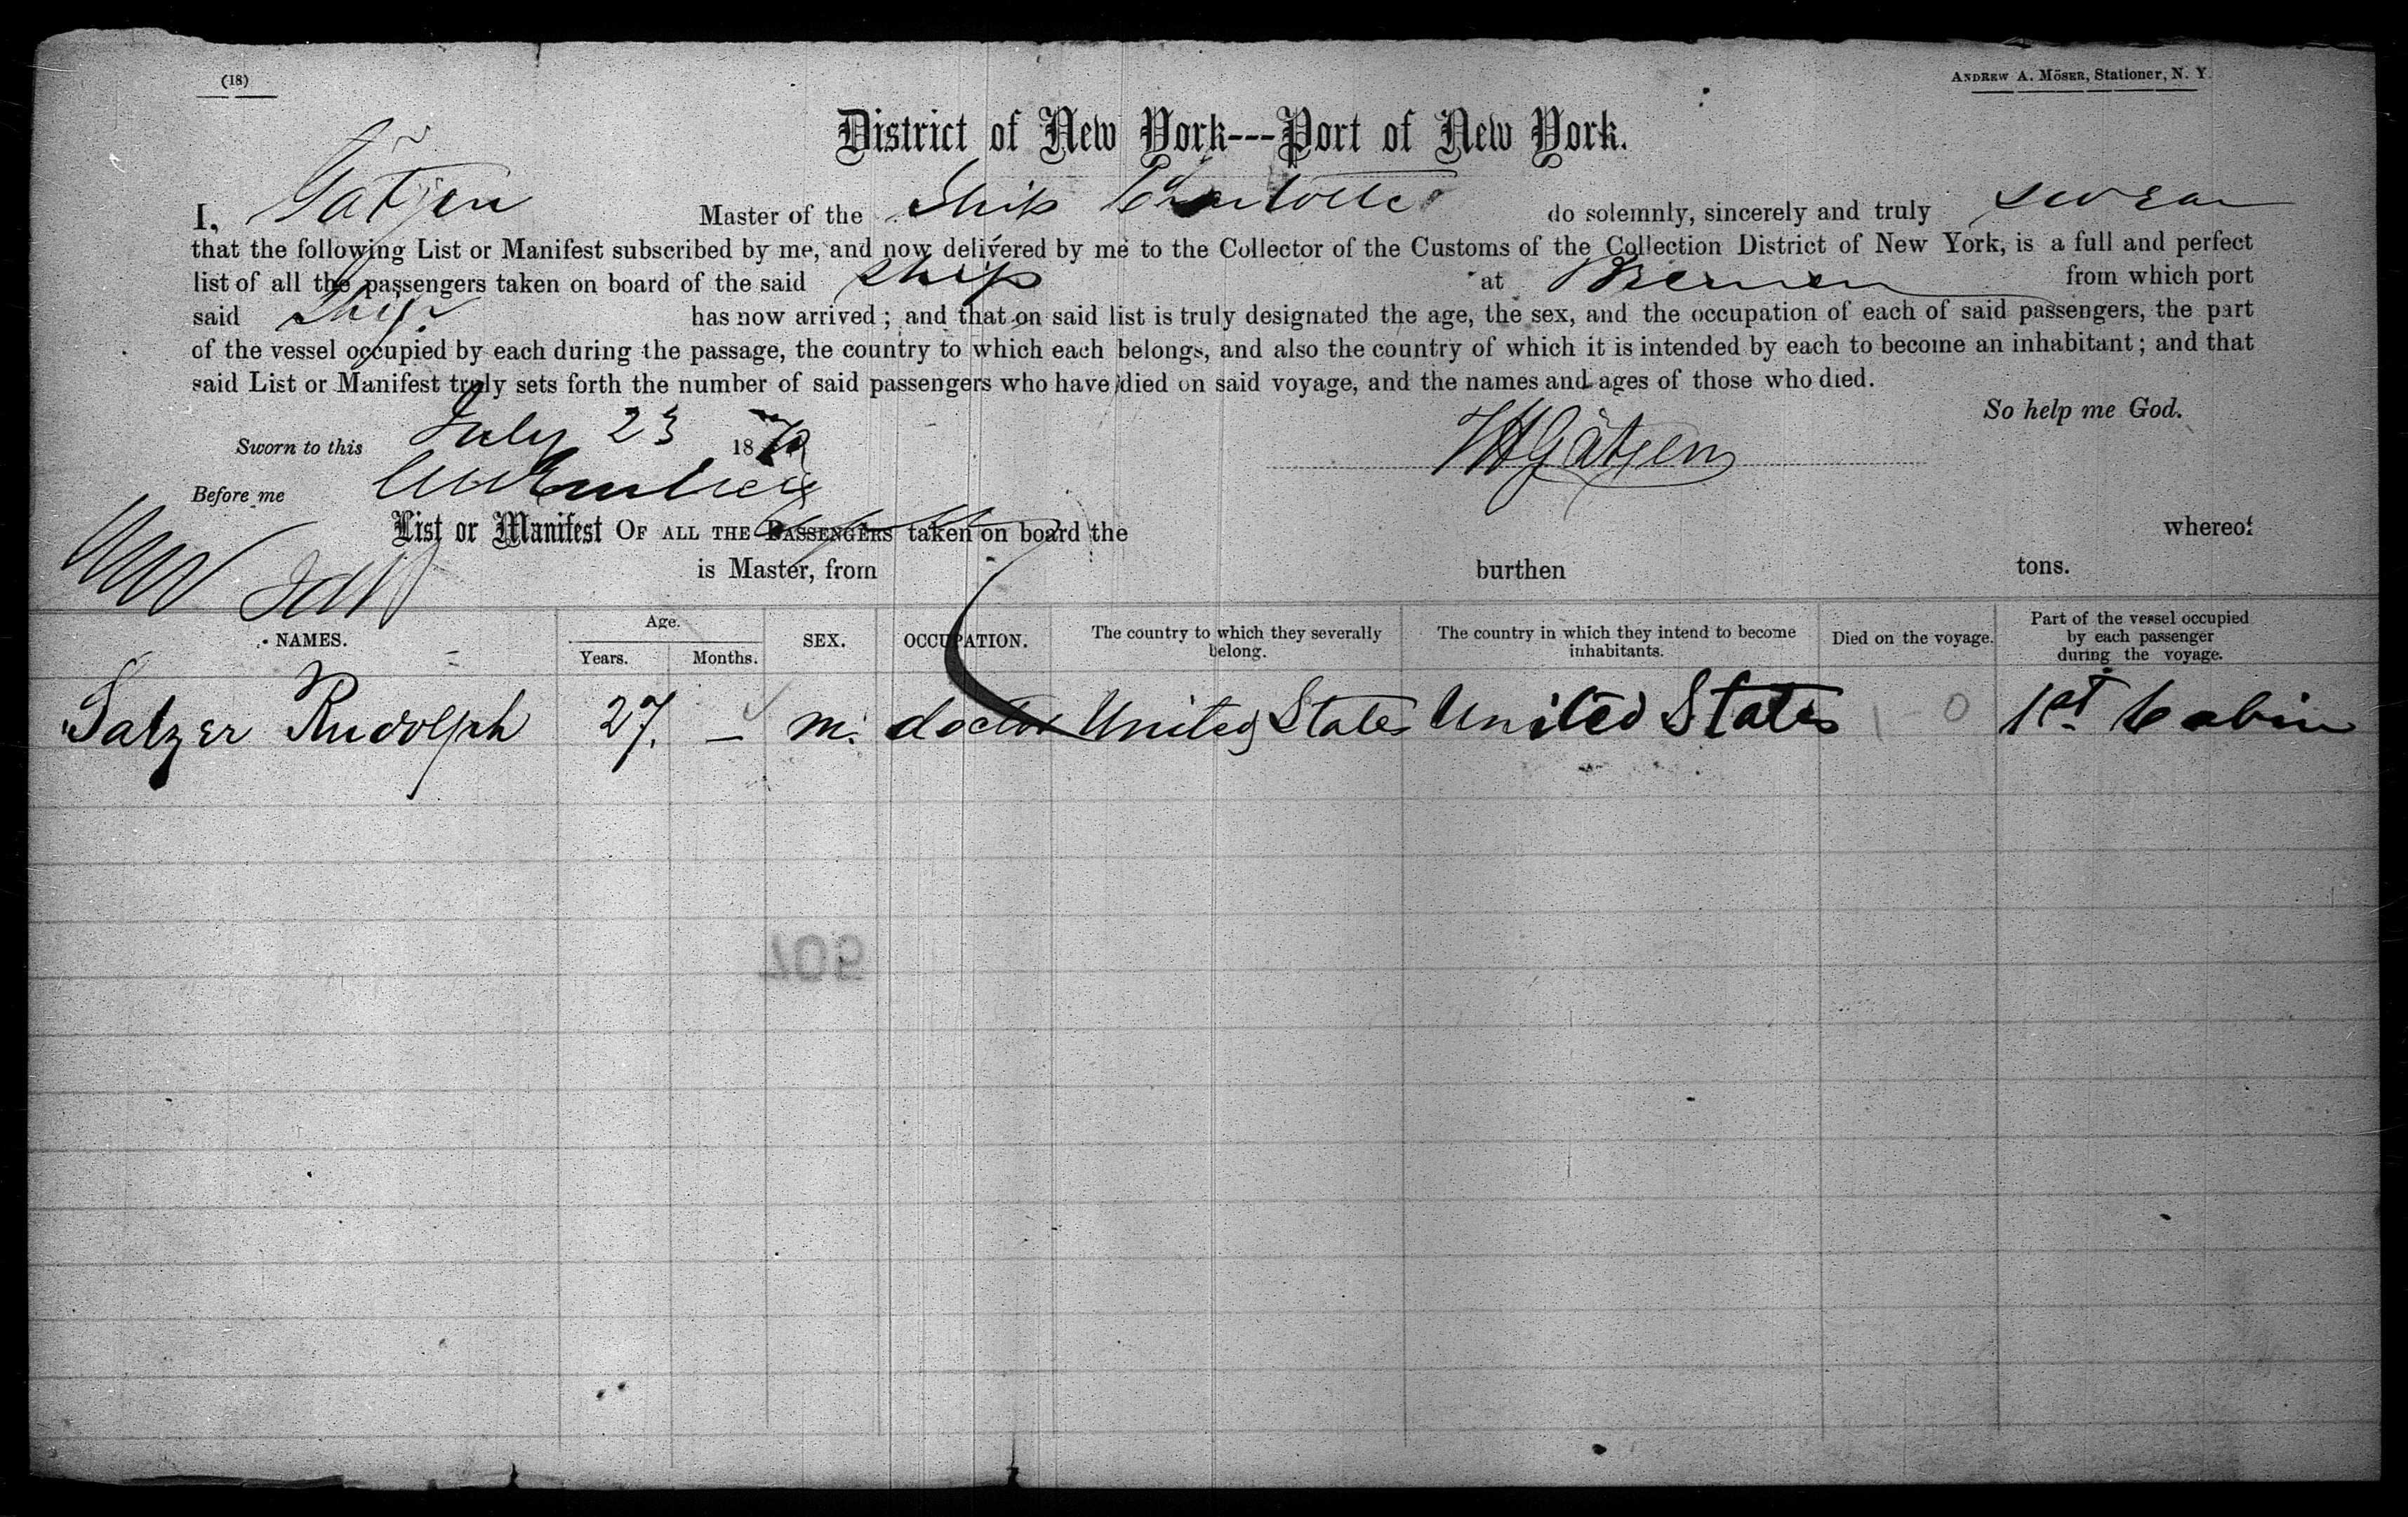 (18)
ANDREW A. MÖSER, Stationer, N. Y.
District of New York---Port of New York.
I, Gätjen Master of the Ship Charlotte do solemnly, sincerely and truly swear
that the following List or Manifest subscribed by me, and now delivered by me to the Collector of the Customs of the Collection District of New York, is a full and perfect
list of all the passengers taken on board of the said ship at Bremen from which port
said ship has now arrived; and that on said list is truly designated the age, the sex, and the occupation of each of said passengers, the part
of the vessel occupied by each during the passage, the country to which each belongs, and also the country of which it is intended by each to become an inhabitant; and that
said List or Manifest truly sets forth the number of said passengers who have died on said voyage, and the names and ages of those who died.
So help me God.
Sworn to this July 23 18
Gätjen
Before me
List or Manifest OF ALL THE PASSENGERS taken on board the whereof
is Master, from burthen tons.
NAMES. Age. Years. Months. SEX. OCCUPATION. The country to which they severally belong. The country in which they intend to become inhabitants. Died on the voyage. Part of the vessel occupied by each passenger during the voyage.
Salzer Rudolph 27. — m. doctor United States United States 1 0 1st Cabin
907